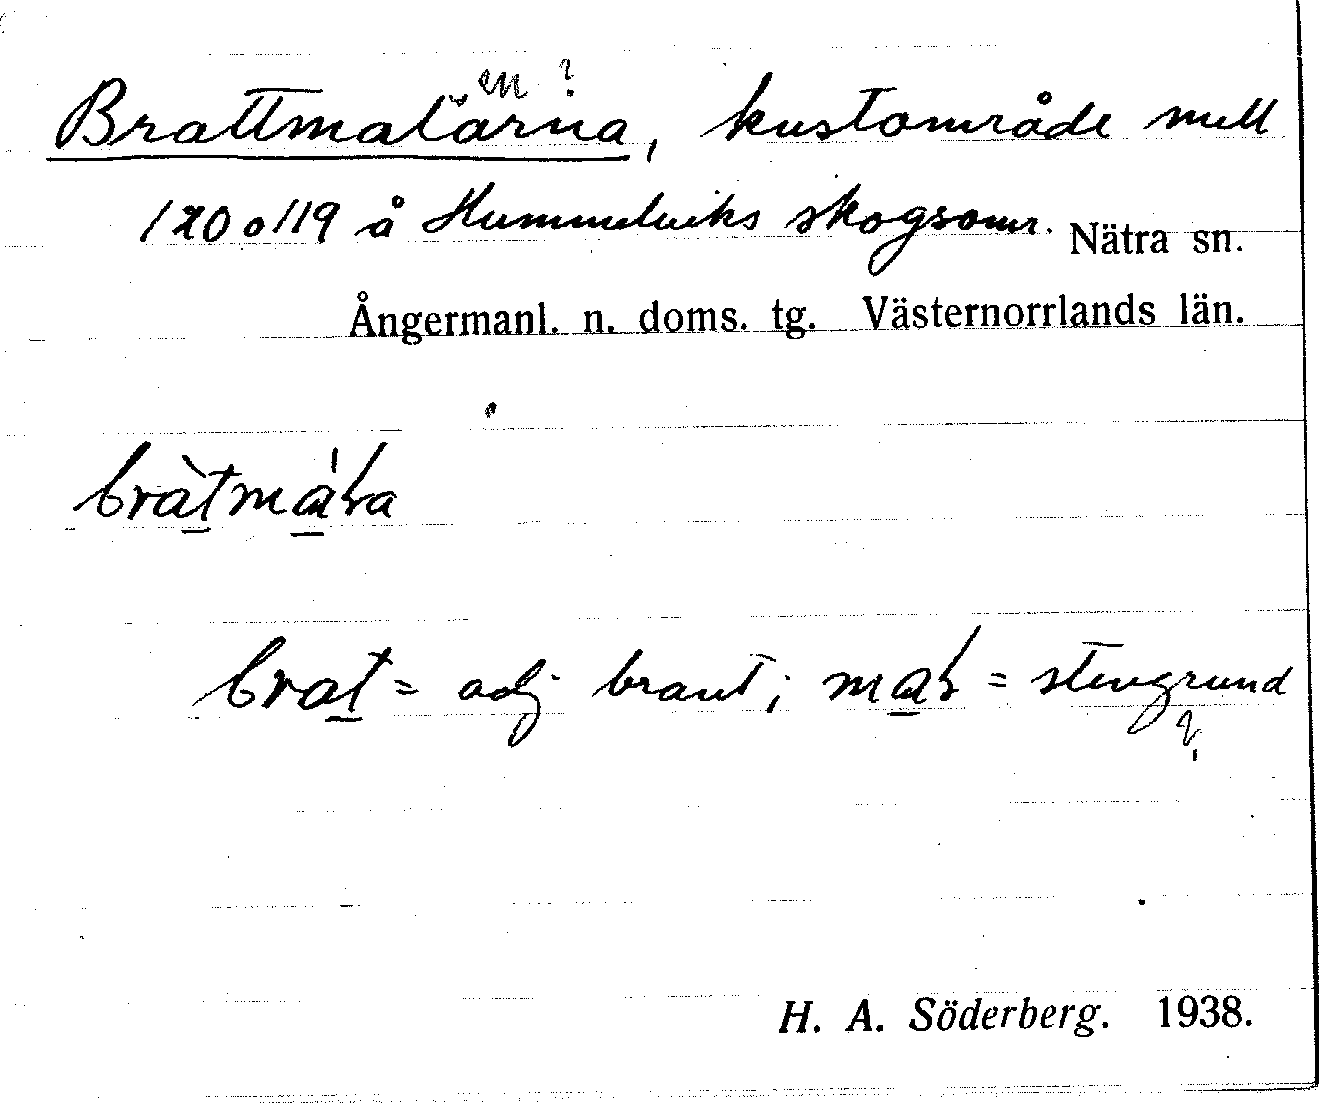 en ?
Brattmalärna, kustområde mell
120 o 119 å Hummelviks skogsomr. Nätra sn.
Ångermanl. n. doms. tg. Västernorrlands län.
brat = adj brant; = stengrund
?
H. A. Söderberg. 1938.